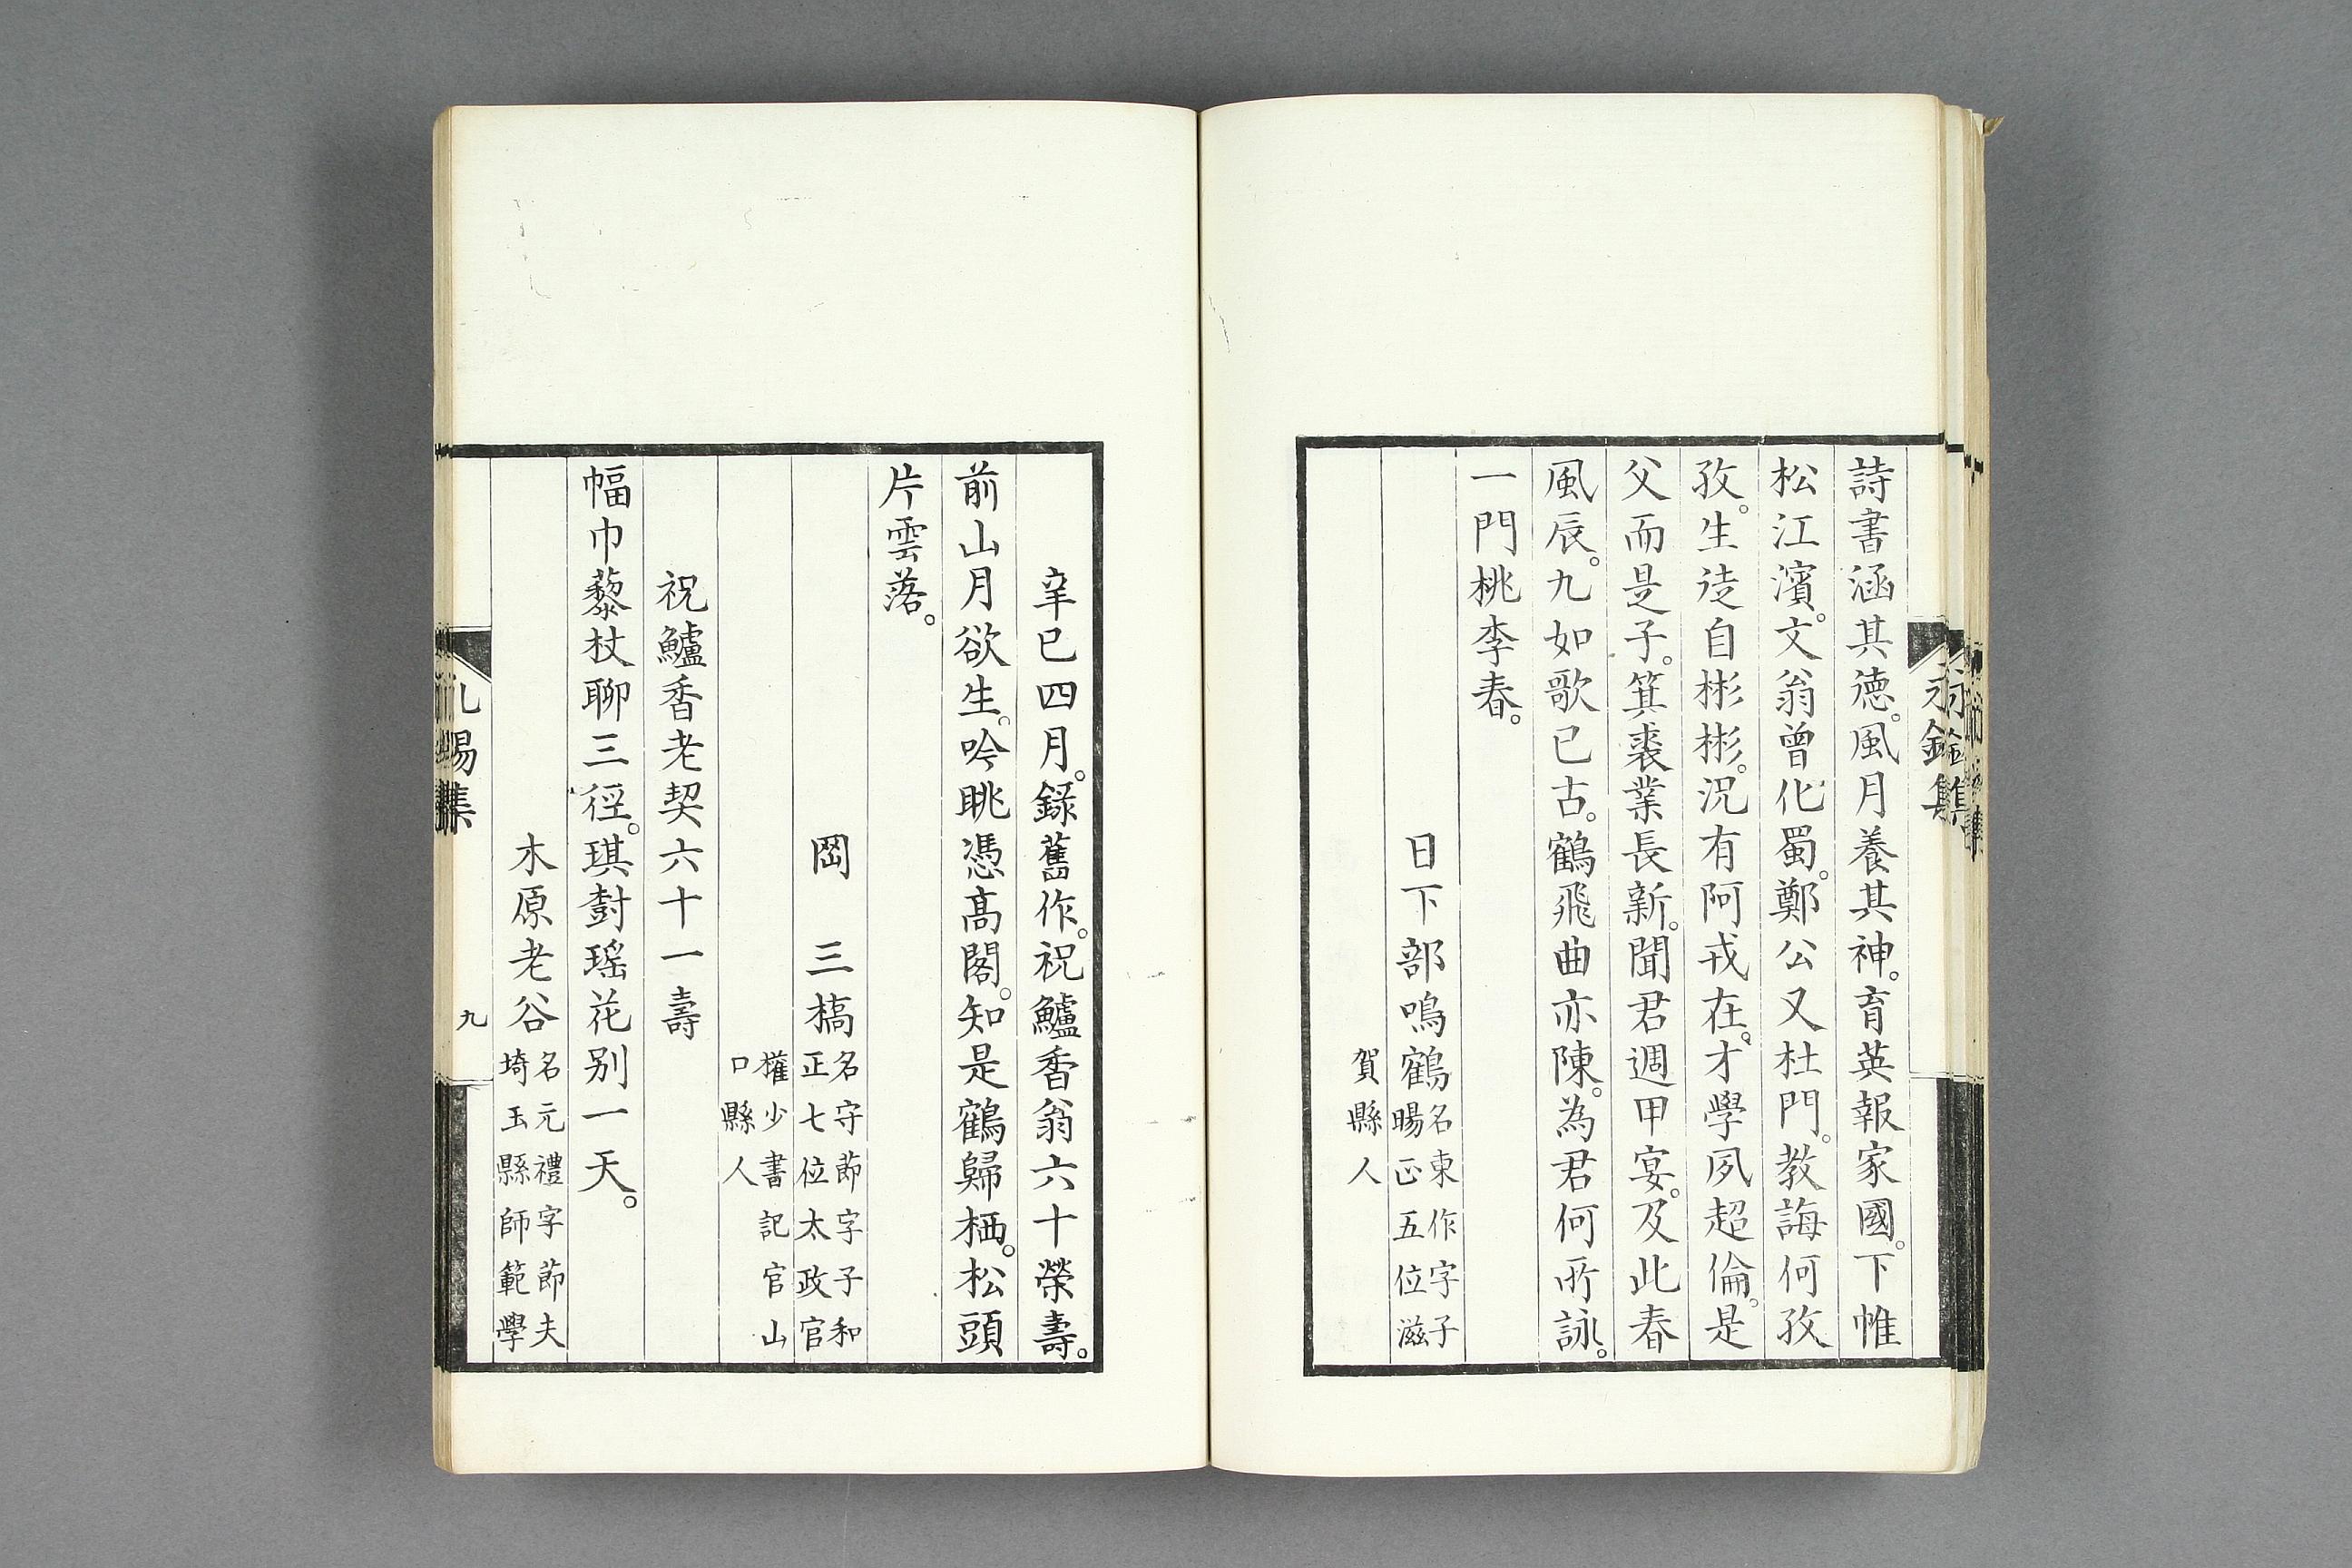 詩書涵其徳。風月養其神。育英報家國。下帷
松江濱。文翁曾化蜀。鄭公又杜門。教誨何孜
孜。生徒自彬彬。況有阿戎在。才學夙超倫。是
父而是子。箕裘業長新。聞君週甲宴。及此春
風辰。九如歌已古。鶴飛曲亦陳。為君何所詠。
一門桃李春。
日下部鳴鶴名東作字子
暘正五位滋
賀縣人
辛巳四月。録舊作。祝鱸香翁六十榮壽。
前山月欲生。吟眺憑高閣。知是鶴歸栖。松頭
片雲落。
岡 三橋名守節字子和
正七位太政官
權少書記官山
口縣人
祝鱸香老契六十一壽
幅巾藜杖聊三徑。琪樹瑤花別一天。
木原老谷名元禮字節夫
埼玉縣師範學
九